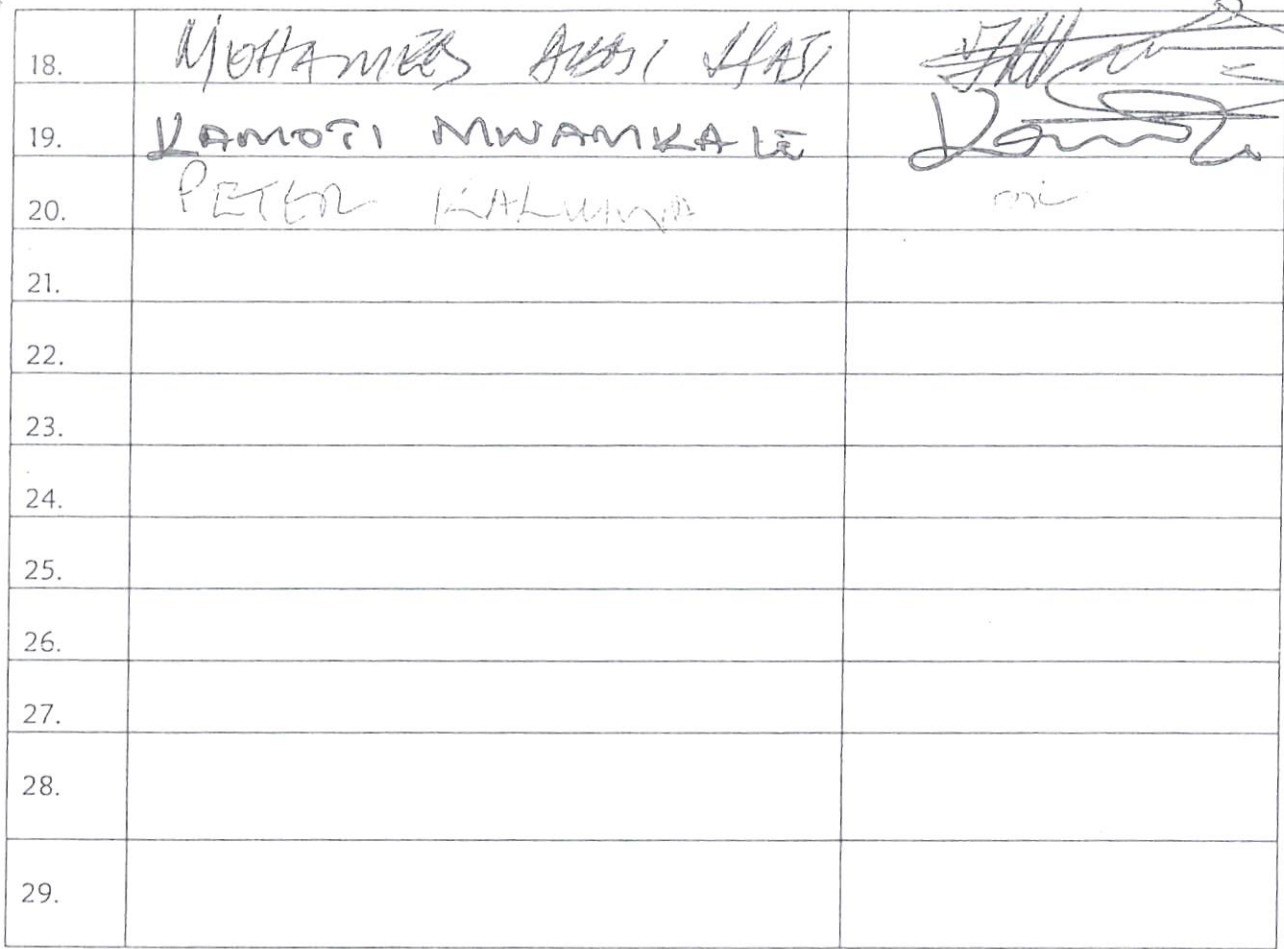 18. MOHAMED ABASI HAJI
19. KAMOTI MWAMKALE
20. PETER
21.
22.
23.
24.
25.
26.
27.
28.
29.